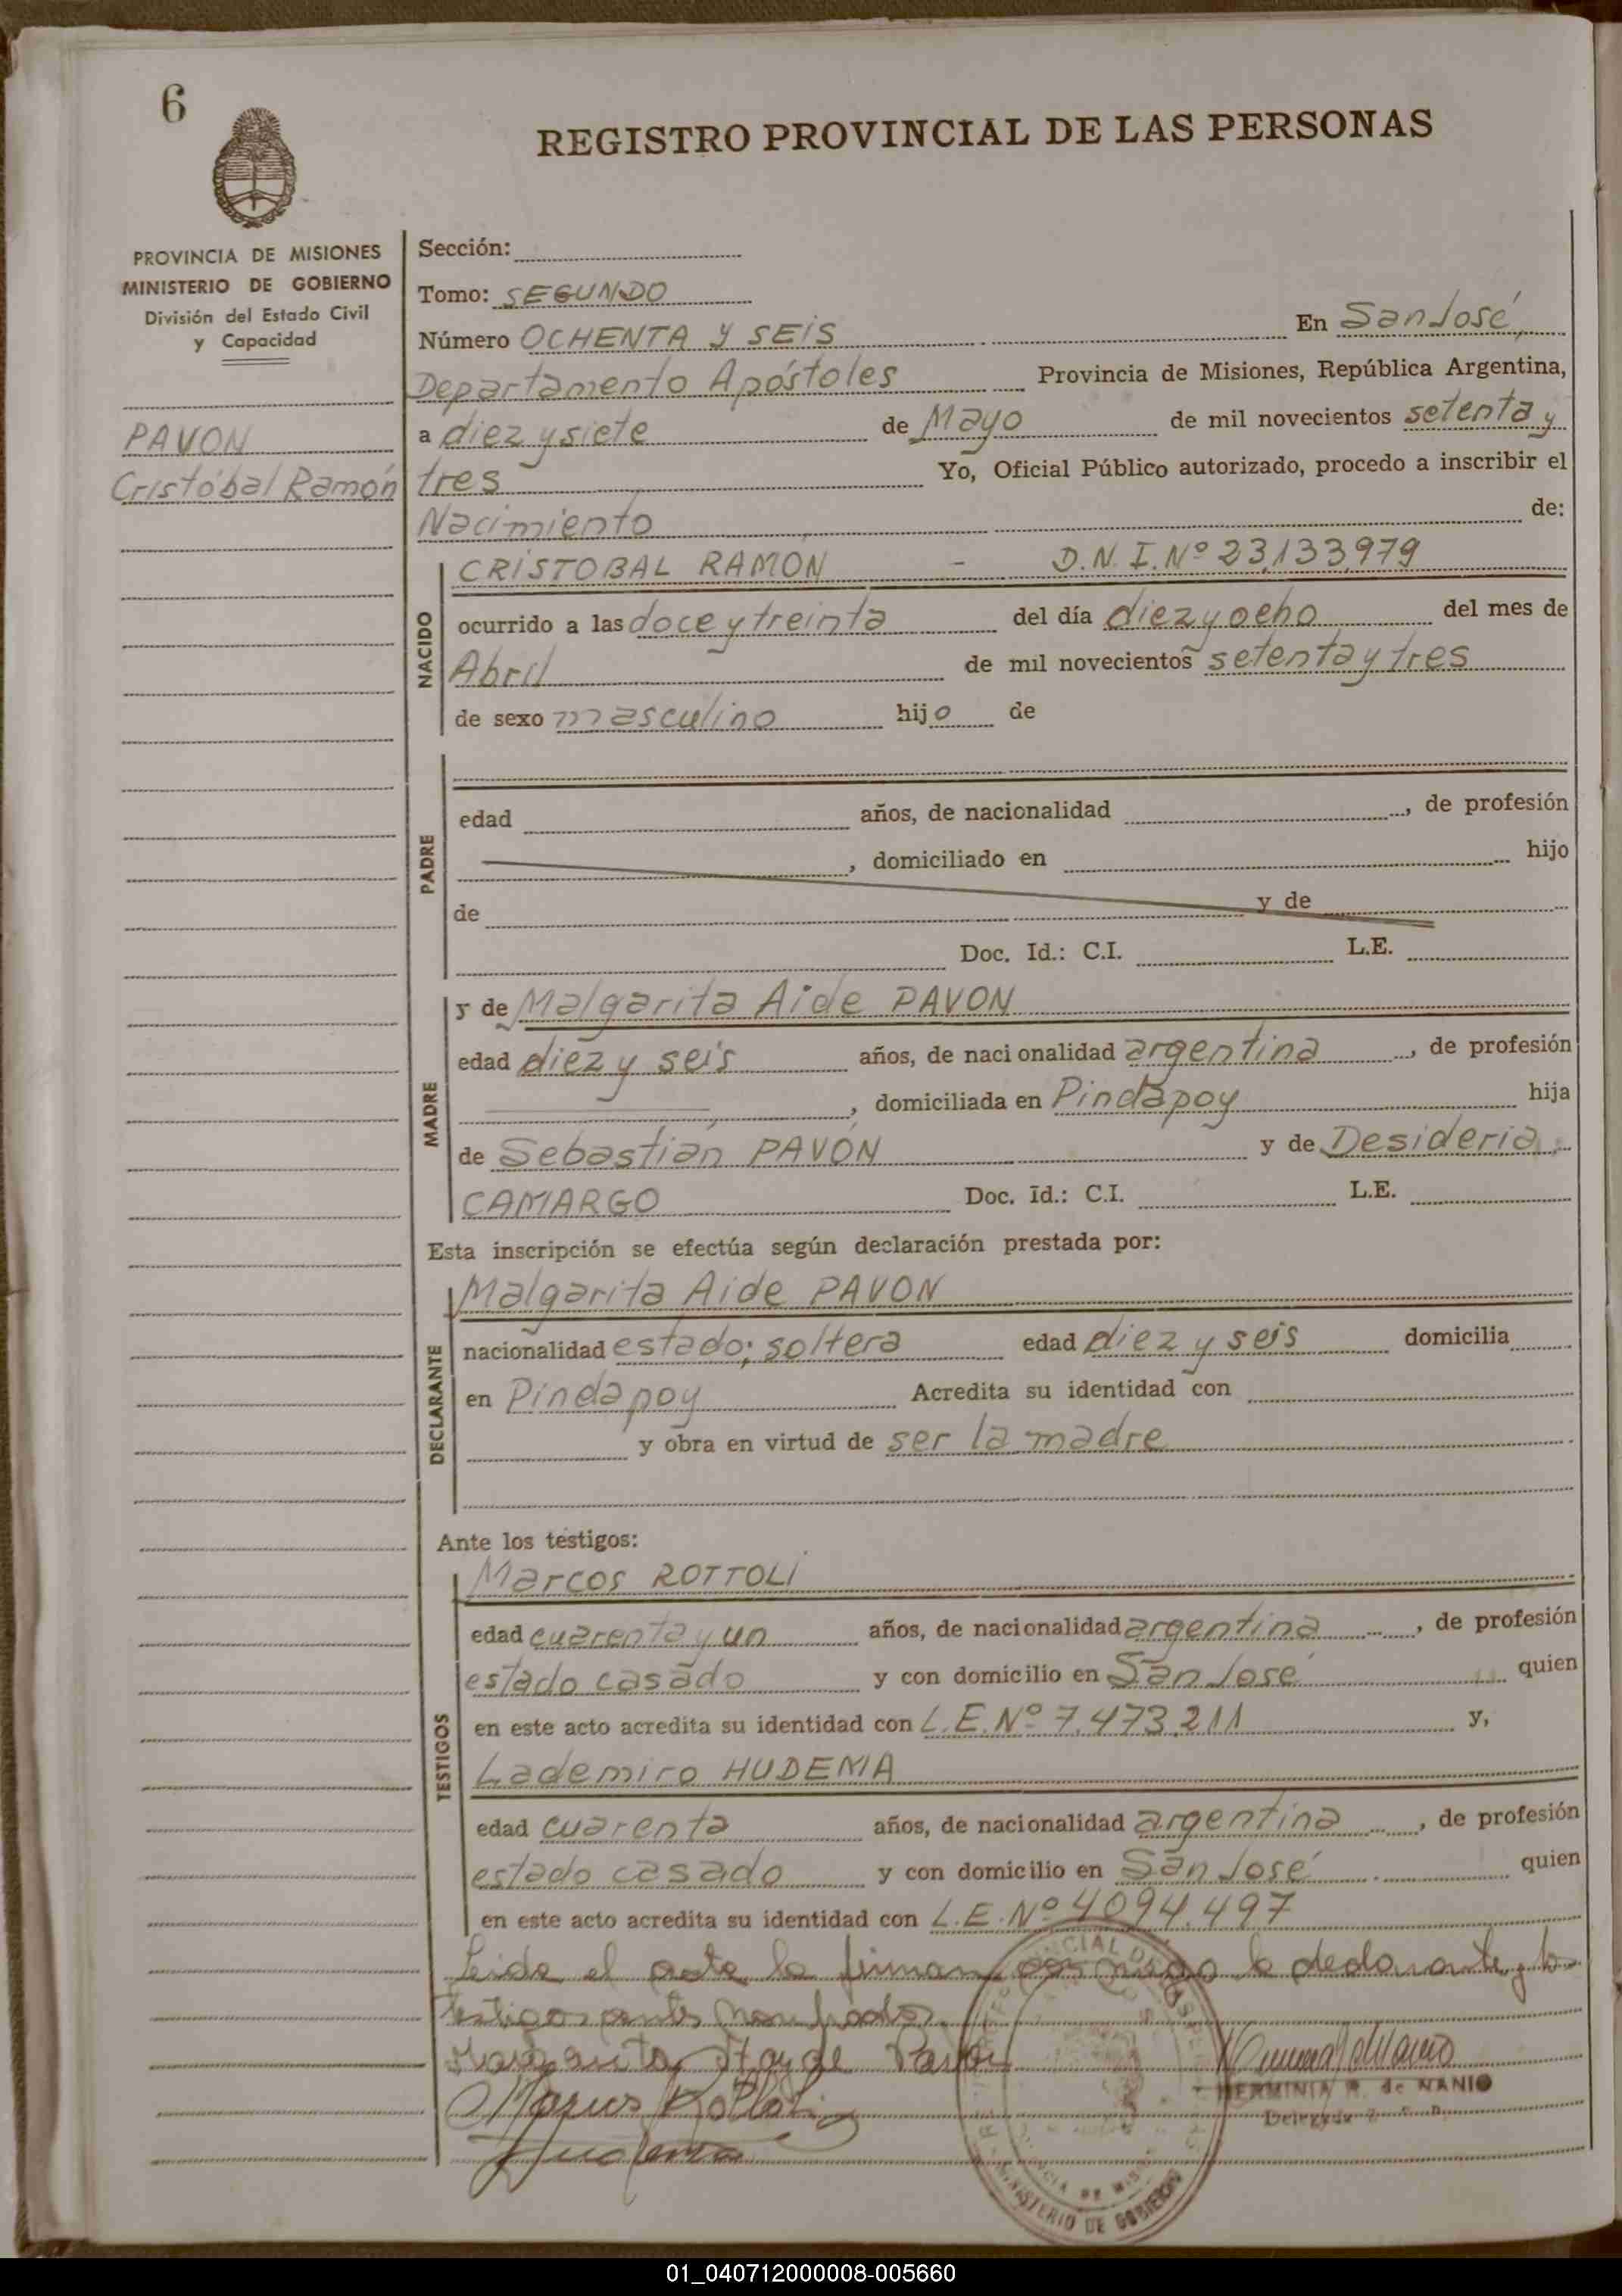 6
REGISTRO PROVINCIAL DE LAS PERSONAS
PROVINCIA DE MISIONES
MINISTERIO DE GOBIERNO
División del Estado Civil
y Capacidad
PAVON
Cristóbal Ramón
Sección:
Tomo: SEGUNDO
Número OCHENTA Y SEIS En San José,
Departamento Apóstoles Provincia de Misiones, República Argentina,
a diez y siete de Mayo de mil novecientos setenta y
tres Yo, Oficial Público autorizado, procedo a inscribir el
Nacimiento de:
NACIDO
CRISTOBAL RAMON - D.N.I. Nº 23,133,979
ocurrido a las doce y treinta del día diez y ocho del mes de
Abril de mil novecientos setenta y tres
de sexo masculino hijo de
PADRE
edad años, de nacionalidad , de profesión
, domiciliado en hijo
de y de
Doc. Id.: C.I. L.E.
MADRE
y de Malgarita Aide PAVON
edad diez y seis años, de nacionalidad argentina , de profesión
, domiciliada en Pindapoy hija
de Sebastián PAVON y de Desideria
CAMARGO Doc. Id.: C.I. L.E.
Esta inscripción se efectúa según declaración prestada por:
DECLARANTE
Malgarita Aide PAVON
nacionalidad estado; soltera edad diez y seis domicilia
en Pindapoy Acredita su identidad con
y obra en virtud de ser la madre
Ante los testigos:
TESTIGOS
Marcos ROTTOLI
edad cuarenta y un años, de nacionalidad argentina , de profesión
estado casado y con domicilio en San José quien
en este acto acredita su identidad con L.E. Nº 7.473.211 y,
Lademiro HUDEMA
edad cuarenta años, de nacionalidad argentina , de profesión
estado casado y con domicilio en San José quien
en este acto acredita su identidad con L.E. Nº 4094.497
Leida el acta la firman la declarante y los
testigos antes nombrados.
HERMINIA R. de NANIO
Delegada
MINISTERIO DE GOBIERNO
01_040712000008-005660